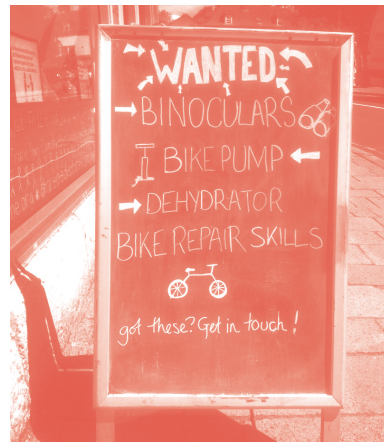 WANTED
BINOCULARS
BIKE PUMP
DEHYDRATOR
BIKE REPAIR SKILLS
got these? Get in touch!